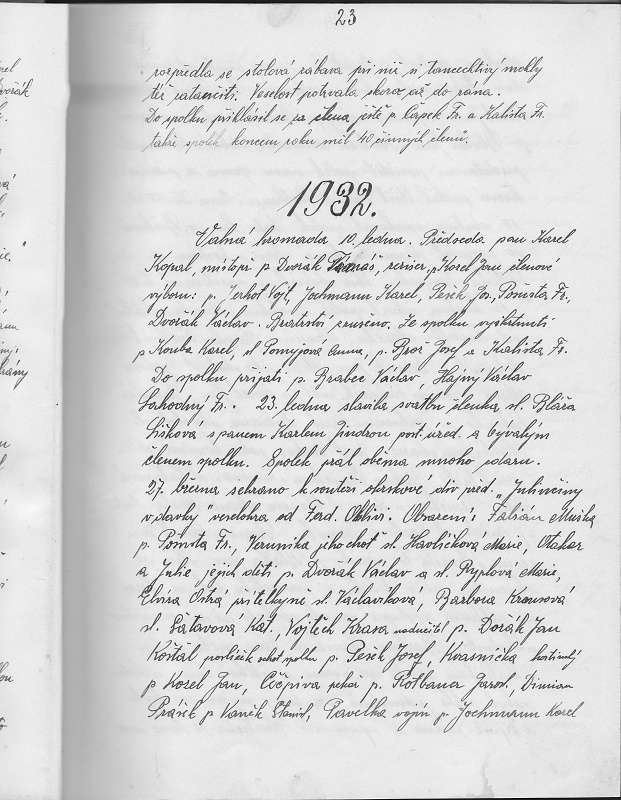 23
rozpředla se stolová zábava při níž si tancechtiví mohly
též zatančiti. Veselost potrvala skoro až do rána.
Do spolku přihlásil se za člena ještě p. Čapek Fr. a Kalista Fr.
takže spolek koncem roku měl 40 činných členů.
1932.
Valná hromada 10. ledna. Předseda pan Karel
Kopal, místopř. p Dvořák Tomáš, režisér, p Kozel Jan členové
výboru: p. Jerhot Vojt, Jochmann Karel, Pešek Jos, Pomsta Fr,
Dvořák Václav. Bratrství zrušeno. Ze spolku vyškrtnuti
p Kouba Karel, sl Anna, p. Brož Josef a Kalista Fr.
Do spolku přijati p. Brabec Václav, Hajný Václav
Lahodný Fr. 23. ledna slavila svatbu členka sl. Bláža
Lišková s panem Karlem Jindrou pošt. úřed. a bývalým
členem spolku. Spolek přál oběma mnoho zdaru.
27. března sehráno k soutěži okrskové div. před. „Julinčiny
vdavky" veselohra od Ferd. Olivi. Obsazení: Fabián Muška
p. Pomsta Fr., Verunika jeho choť sl. Havlíčková Marie, Otakar
a Julie jejich děti p. Dvořák Václav a sl. Ryplová Marie,
Elvíra Ostrá přítelkyně sl. Václavíková, Barbora Krausová
sl. Šatavová Kat., Vojtěch Krasa p. Dořák Jan
Košťál spolku p. Pešek Josef, Kvasnička hostinský
p Kozel Jan, Cicpiva pekař p. Rotbana Jarosl, Dimian
Prášek p Vaněk Stanisl, Pavelka vojín p. Jochmann Karel